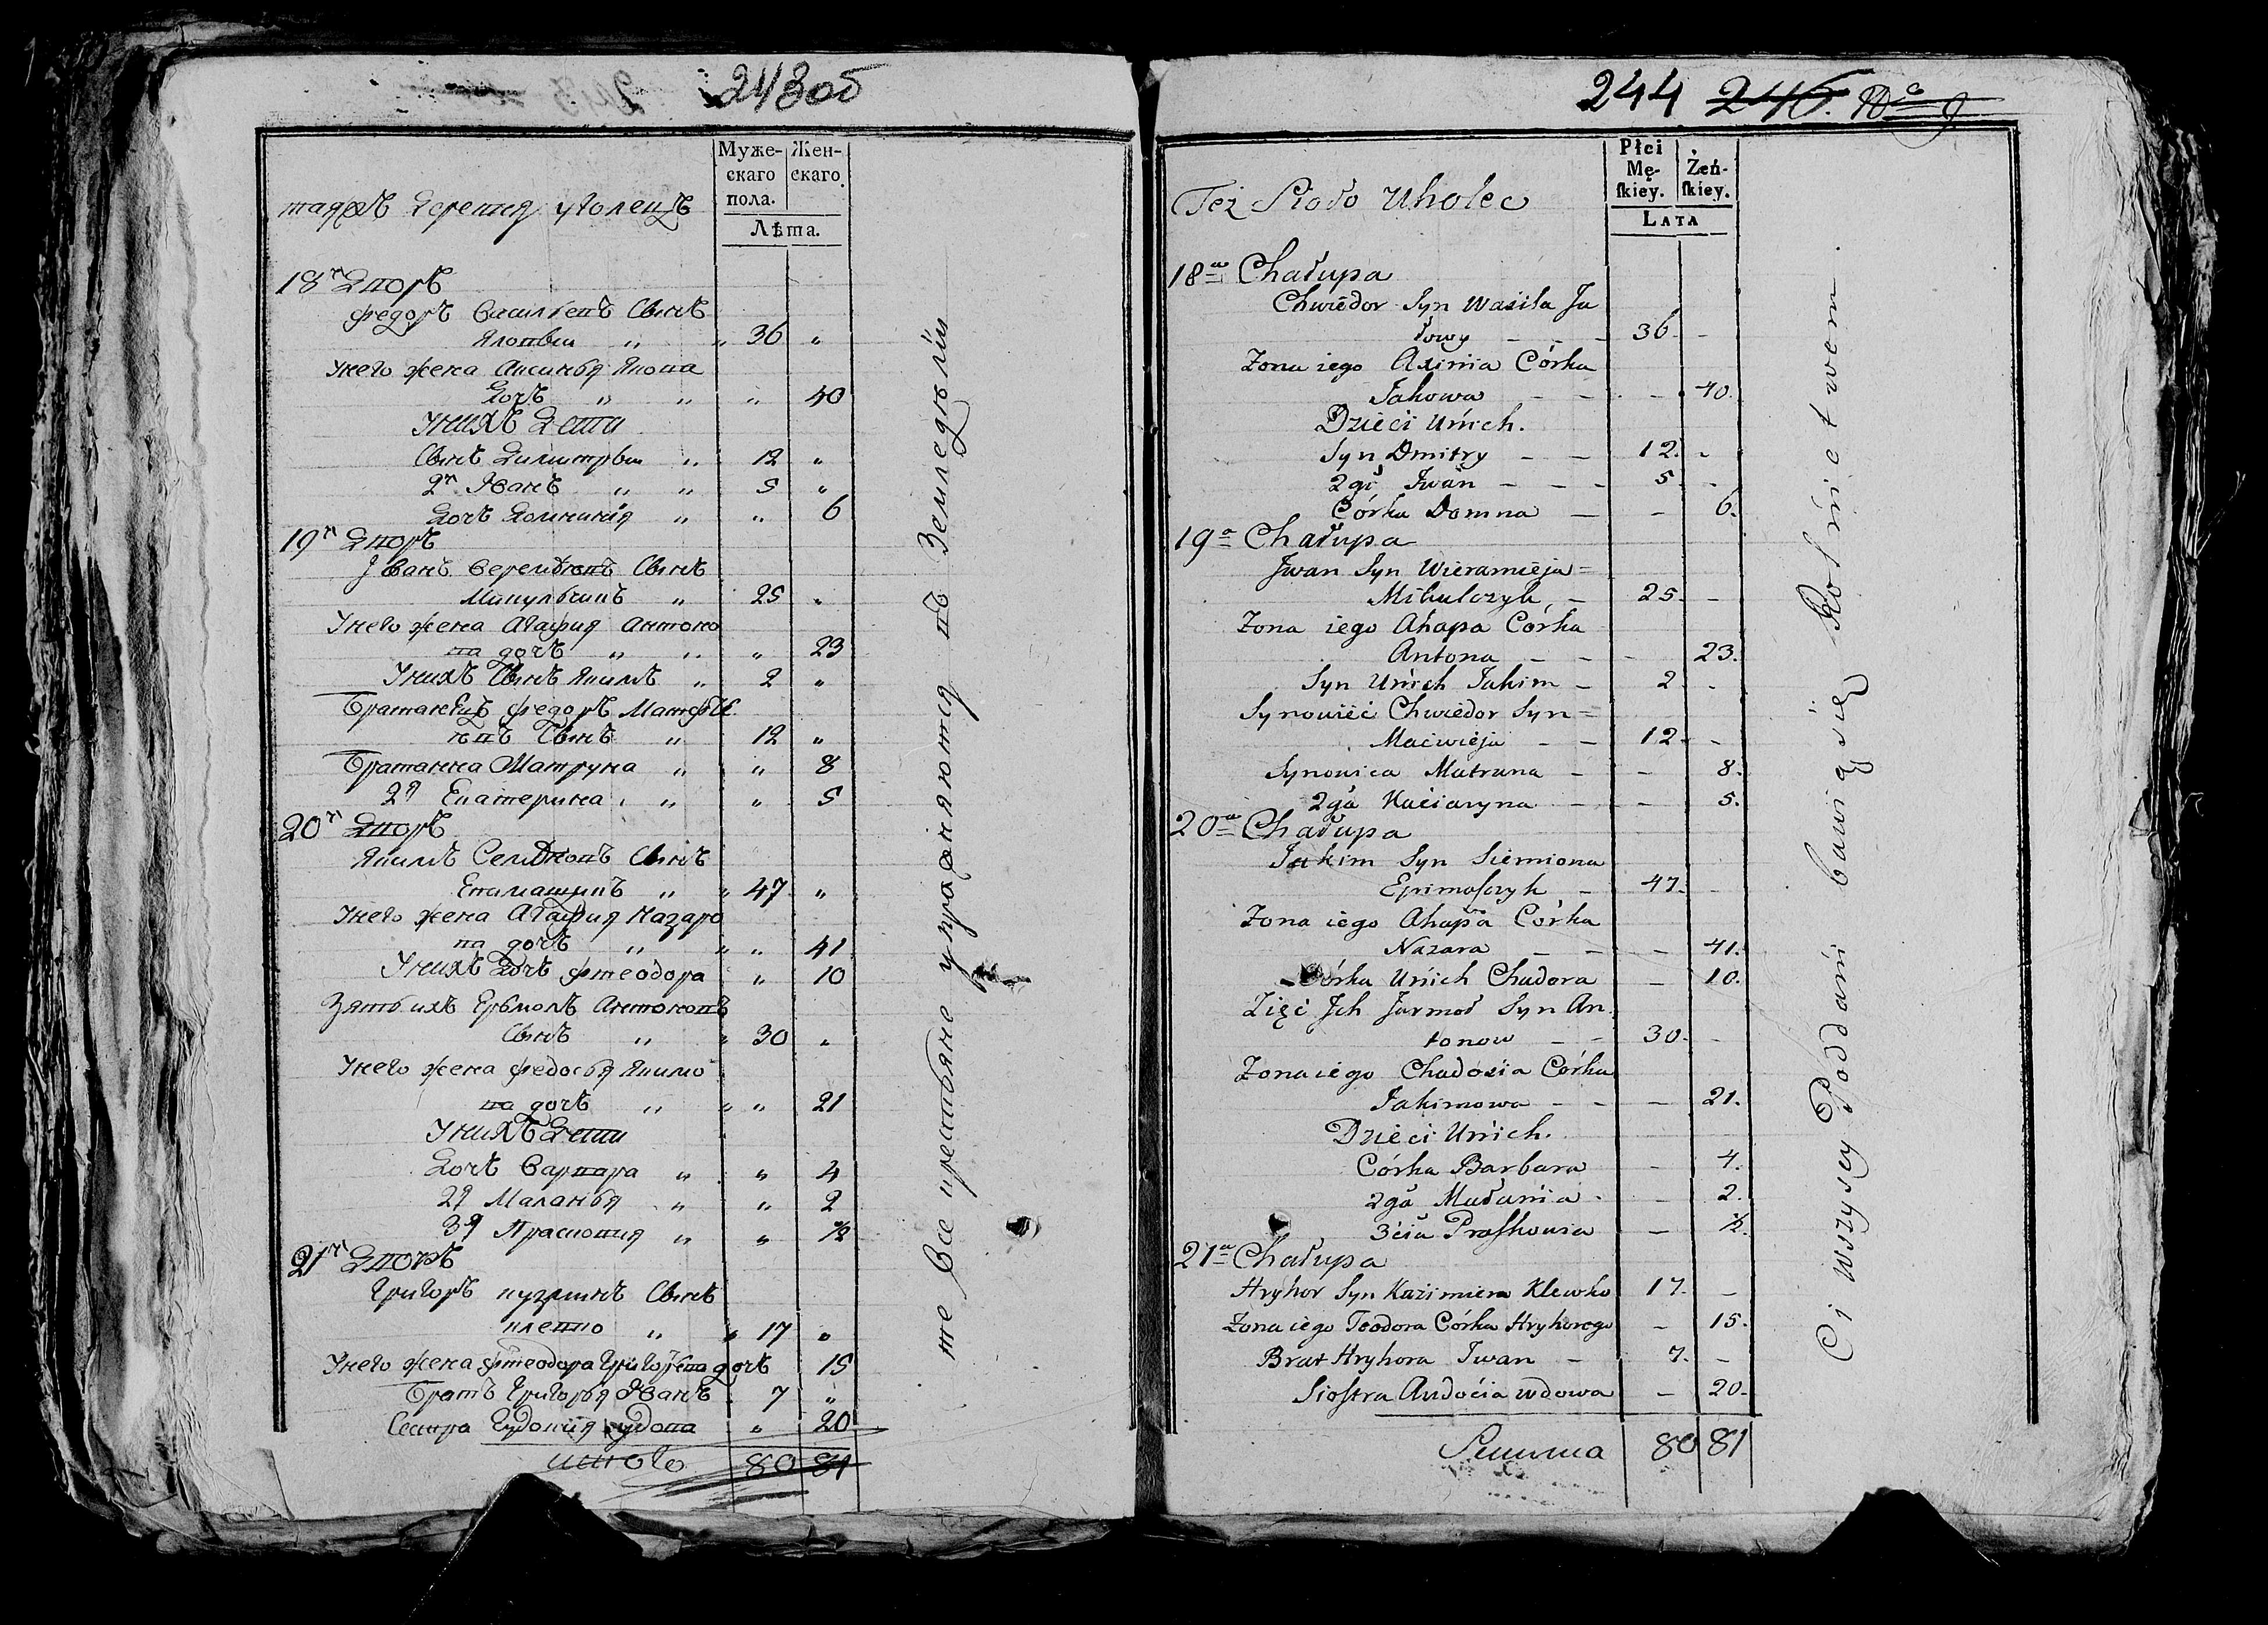 243об
Муже-
скаго
пола.
Жен-
скаго.
Лѣта.
таяжъ деревня уголецъ
18й Дворъ
Федоръ васильевъ Сынъ
Яловы " " 36 "
Унего жена Аксинья Якова
Дочь " " " 40
Унихъ Дети
Сынъ Димитры " 12 "
2й Іванъ " " 5 "
Дочь Домникія " " 6
19й Дворъ
Іванъ веремѣевъ Сынъ
Микульчикъ " 25 "
Унего жена Агафия Антоно
ва дочь " " " 23
Унихъ Сынъ Якимъ " 2 "
Братанецъ Федоръ Матфѣ
евъ Сынъ " 12 "
Братанка Матруна " " 8
2я Екатерина " " 5
20й Дворъ
Якимъ Семѣновъ Сынъ
" " 47 "
Унего жена Агафия Назаро
ва дочь " " " 41
Унихъ Дочь Фтеодора " 10
Зять ихъ Ерьмолъ Антоновъ
Сынъ " " 30 "
Унего жена Федосья Якимо
ва дочь " " " 21
Унихъ Дети
Дочь Варвара " " 4
2я Маланья " " 2
3я Прасковия " " ½
21й Дворъ
Григоръ Сынъ
клевко " " 17 "
Унего жена Фтеодора Григорьева дочь 15
Братъ Григорья Іванъ 7 "
Сестра удова " 20
итого 80 81
те все крестьяне упражняются въ Земледѣлiи
244 246.
Płci
Mę-
ſkiey.
Żeń-
ſkiey.
Lata
Też Sioło Uholec
18a Chałupa
Chwiedor Syn Wasila Ja
łowy - - - 36. -
Zona iego Axinia Córka
Jakowa - - - 40.
Dzieci Unich.
Syn Dmitry - - 12. -
2gi Iwan - - - 5. -
Córka Domna - - 6.
19a Chałupa
Jwan Syn Wieramieja =
Mikulczyk - 25. -
Zona iego Ahapa Corka
Antona - - - 23.
Syn Unich Jakim - 2 -
Synowiéc Chwiedor Syn =
Maćwieja - - 12. -
Synowica Matruna - - 8.
2gá Kaciaryna - - 5.
20a Chałupa
Jakim Syn Siemiona
Epimaſzyk - 47. -
Zona iego Ahapa Córka
Nazara - - - 41.
Córka Unich Chadora - 10.
Zięć Jch Jarmoł Syn An
tonow - - 30. -
Zona iego Chadosia Córka
Jakimowa - - - 21.
Dzieci Unich.
Córka Barbara - 4.
2gá Małania - - 2.
3ćia Praſkowia - ½.
21a Chałupa
Hryhor Syn Kazimiera Klewko 17. -
Zona iego Teodora Córka Hryhorego - 15.
Brat Hryhora Iwan - 7. -
Sioſtra Audocia wdowa - 20.
Summa 80 81
Ci wszyscy Poddani bawią się Rolnictwem.